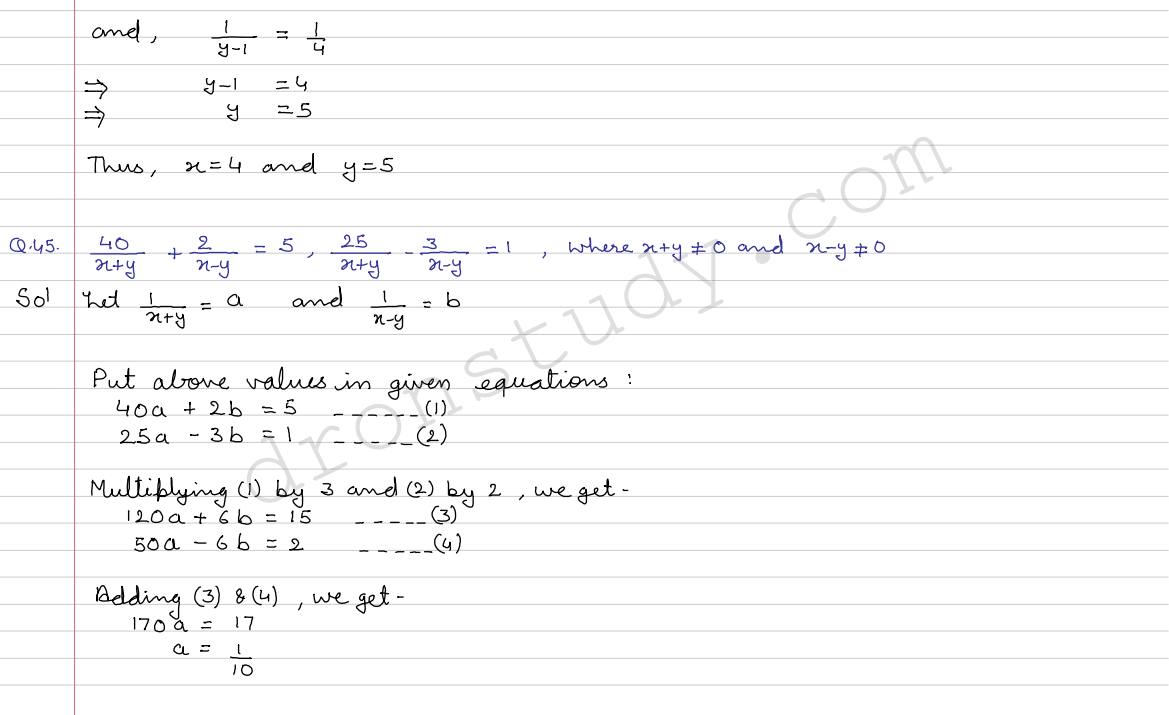 and, 1/(y-1) = 1/4
⇒ y-1 = 4
⇒ y = 5
Thus, x=4 and y=5
Q.45. 40/(x+y) + 2/(x-y) = 5, 25/(x+y) - 3/(x-y) = 1, where x+y ≠ 0 and x-y ≠ 0
Sol Let 1/(x+y) = a and 1/(x-y) = b
Put above values in given equations:
40a + 2b = 5 ------(1)
25a - 3b = 1 -----(2)
Multiplying (1) by 3 and (2) by 2, we get-
120a + 6b = 15 -----(3)
50a - 6b = 2 -----(4)
Adding (3) & (4), we get-
170a = 17
a = 1/10
dronstudy.com